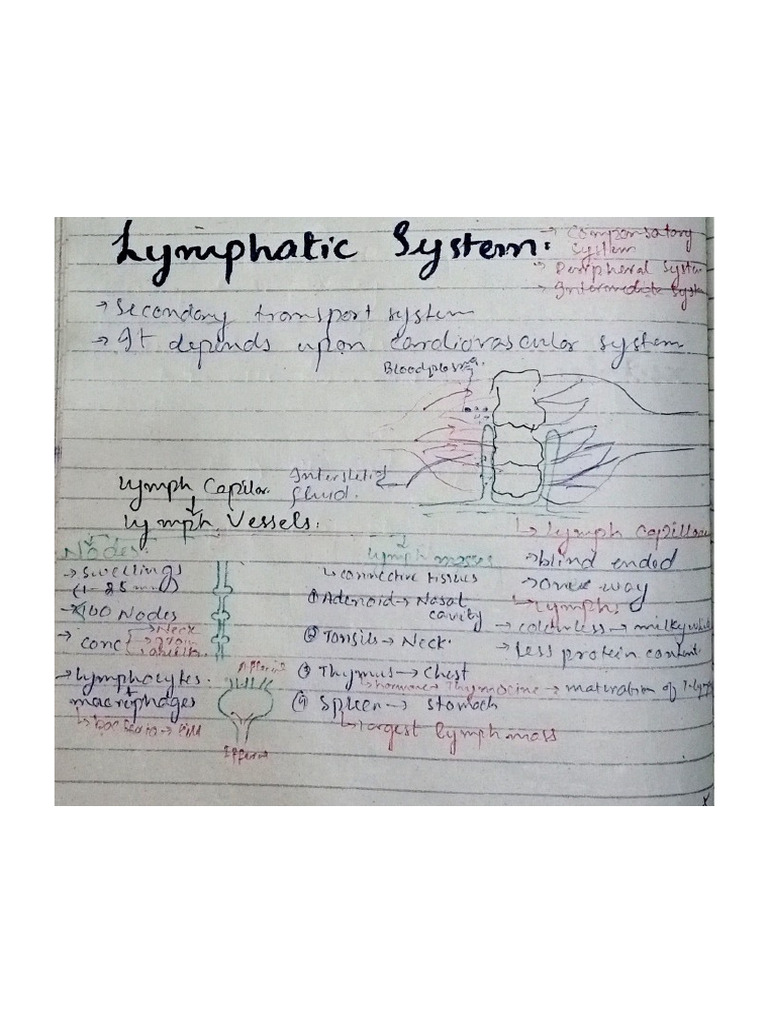 Lymphatic System:
→ Compensatory
System
→ Peripheral System
→ Intermediate System
→ Secondary transport system
→ It depends upon cardiovascular system
Bloodplasma.
Lymph Capilar.
Interstetial
fluid.
Lymph Vessels:
Nodes:
→ Swellings
(1-25 mm)
100 Nodes
→ conc { → Neck
→ groin
→ lymphocytes.
+
macrophages
→ Kill
Afferent
Efferent
lymph masses
↳ connective tissues
① Adenoid → Nasal
cavity
② Tonsils → Neck.
③ Thymus → Chest
↳ hormone → Thymocine → maturation of T-lymp
④ Spleen → Stomach
↳ largest lymph mass
↳ lymph capillar
→ blind ended
→ one way
↳ lymphs
→ colourless → milkywhi
→ less protein content